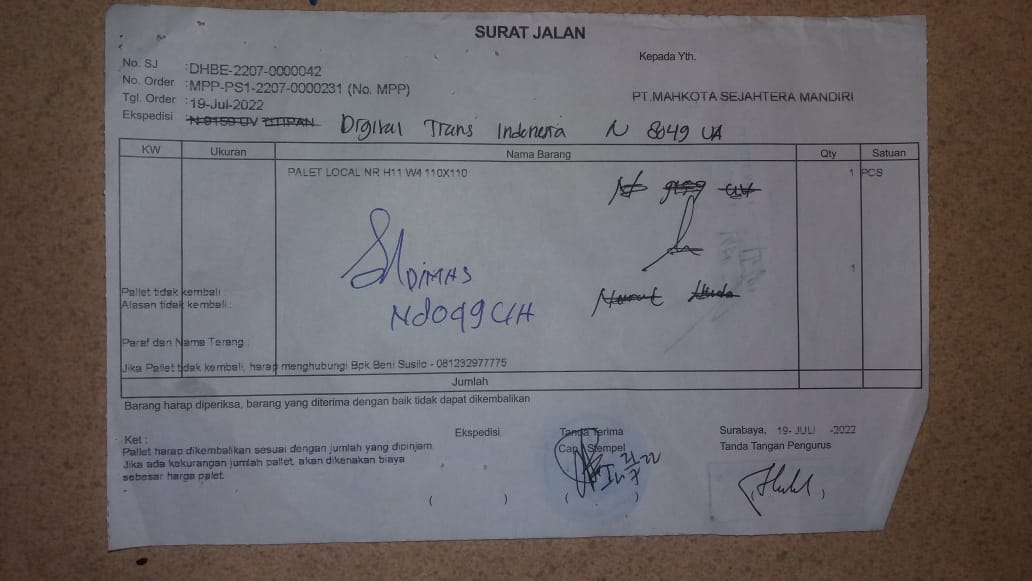 SURAT JALAN
Kepada Yth.
No. SJ : DHBE-2207-0000042
No. Order : MPP-PS1-2207-0000231 (No. MPP)
Tgl. Order : 19-Jul-2022
PT.MAHKOTA SEJAHTERA MANDIRI
Ekspedisi : N 9159 UV TITIPAN Digital Trans Indonesia N 8049 UA
KW Ukuran Nama Barang Qty Satuan
PALET LOCAL NR H11 W4 110X110 1 PCS
1
DIMAS
Pallet tidak kembali :
Alasan tidak kembali :
Nurul Huda
Paraf dan Nama Terang :
Jika Pallet tidak kembali, harap menghubungi Bpk.Beni Susilo - 081232977775
Jumlah
Barang harap diperiksa, barang yang diterima dengan baik tidak dapat dikembalikan
Ket :
Pallet harap dikembalikan sesuai dengan jumlah yang dipinjam.
Jika ada kekurangan jumlah pallet, akan dikenakan biaya
sebesar harga palet.
Ekspedisi
( )
Tanda Terima
Cap Stempel
( )
Surabaya, 19- JULI -2022
Tanda Tangan Pengurus
( )